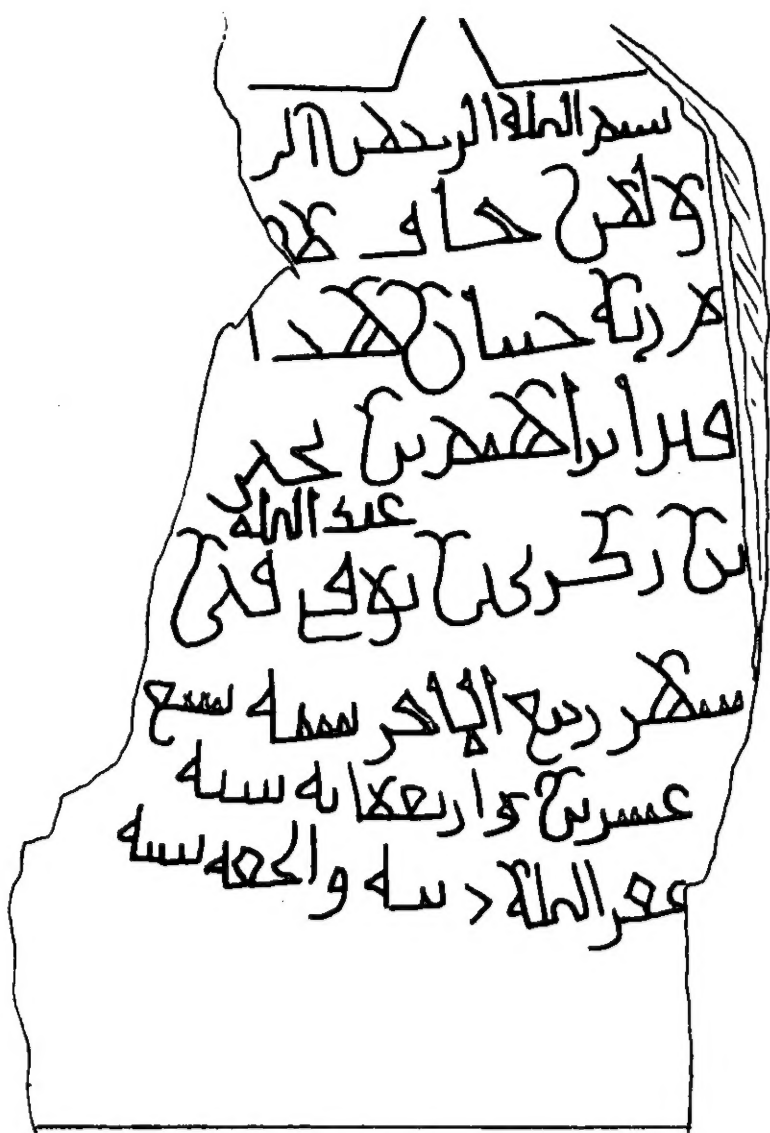 بسم الله الرحمن الر
ولمن خاف مقا
م ربه جنتان هذا
قبر ابراهيم بن
عبد الله
بن زكرى بن توفي في
شهر ربيع الاخر سنة
عشرين واربعماية سنة
غفر الله ذنبه والحقه بنبيه